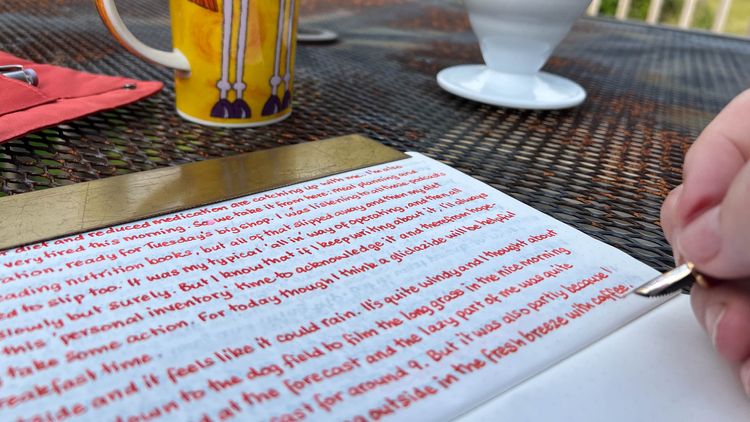 diet and reduced medication are catching up with me. I'm also
very tired this morning. So we take it from here: meal planning and
ation, ready for Tuesday's big shop. I was listening to all those podcasts
eading nutrition books, but all of that slipped away and then my diet
ed to slip too. It was my typical 'all in' way of operating, and then, all
slowly but surely. But I know that if I keep writing about it, I'll always
this 'personal inventory' time to acknowledge it and therefore hope-
take some action. For today though I think a gliclazide will be helpful
reakfast time.
tside and it feels like it could rain. It's quite windy and I thought about
down to the dog field to film the long grass in the nice morning
d at the forecast and the lazy part of me was quite
cast for around 9. But it was also partly because I
g outside in the fresh breeze with coffee.